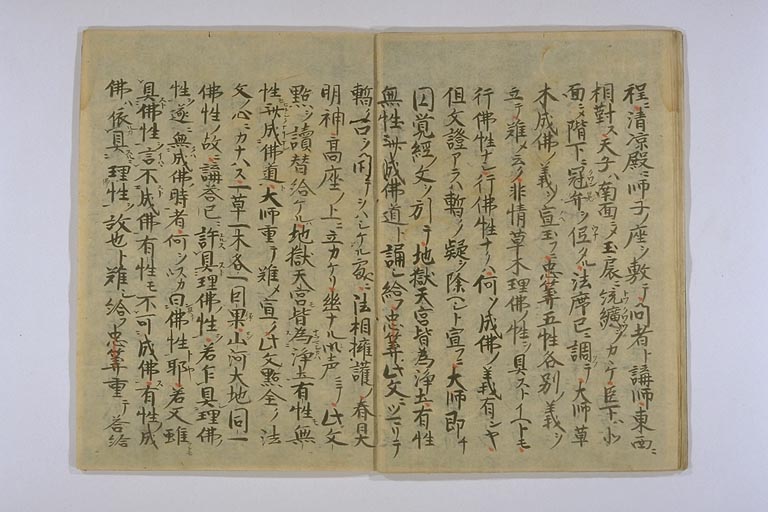 程ニ清凉殿ニ師子ノ座ヲ敷テ問者ト講師東西ニ
相對ス天子ハ南面ニメ玉扆ニ統纊ヲカケ臣下ハ小
面ニメ階下ニ冠弁ヲ低タル法席已ニ調テ大師草
木成佛ノ義ヲ宣玉フニ忠筭五性各別ノ義ヲ
立テ難メ云ク非情草木理佛ノ性ヲ具ストイヘトモ
行佛性ナシ行佛性ナクハ何ソ成佛ノ義有ンヤ
但文證アラハ暫ノ疑ヲ除ヘシト宣フニ大師即チ
囚覚經ノ文ヲ引テ地獄天宮皆為浄土有性
無性斉成佛道ト誦シ給フ忠筭此文ニツマリテ
暫ク口ヲ閇テシハシケル處ニ法相擁護ノ春日大
明神高座ノ上ニ立カケリ幽ナル御声ニテ此文
點ヲ讀替給ケル地獄天宮皆為浄土有性無
性斉成佛道大師重テ難メ宣ク此文點全ク法
文ノ心ニカナハス一草一木各一因果山河大地同一
佛性ノ故ニ講答已ニ許具理佛性ヲ若乍具理佛
性ヲ遂ニ無成佛時者何ヲスカ曰佛性耶若又雖
具佛性言不成佛有性モ不可成佛有性成
佛ハ依具理性ヲ故也ト難シ給フ忠筭重テ答給